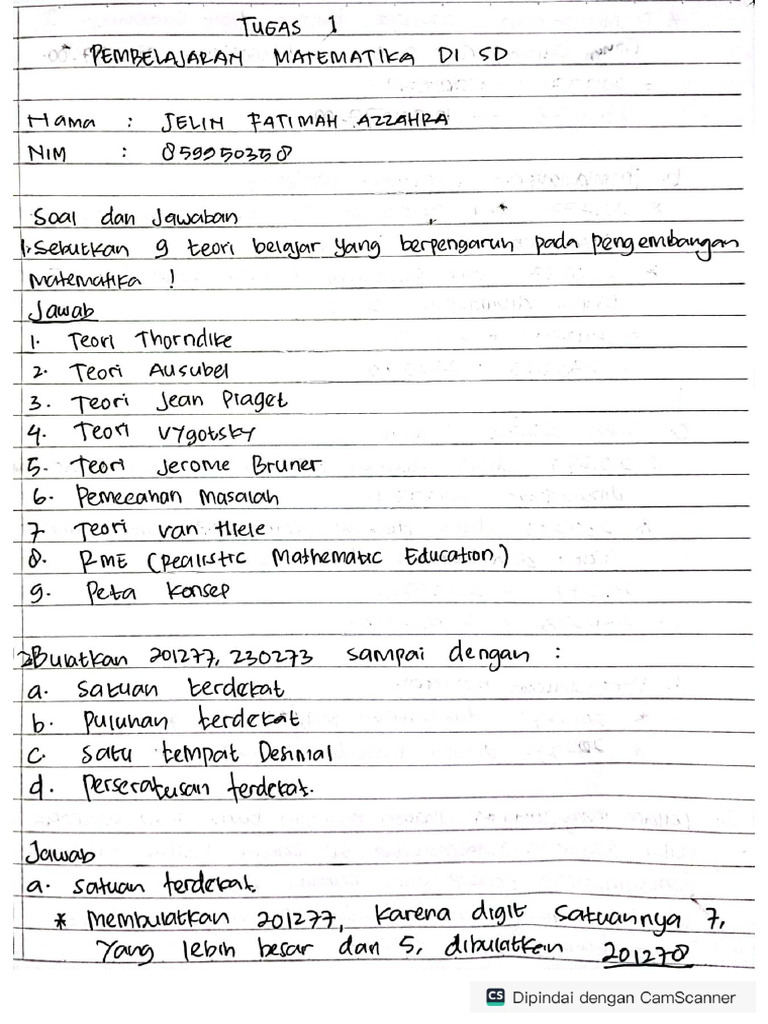 TUGAS 1
PEMBELAJARAN MATEMATIKA DI SD
Nama : JELIN FATIMAH AZZAHRA
NIM : 859950358
Soal dan Jawaban
1. Sebutkan 9 teori belajar yang berpengaruh pada pengembangan
matematika !
Jawab
1. Teori Thorndike
2. Teori Ausubel
3. Teori Jean Piaget
4. Teori Vygotsky
5. Teori Jerome Bruner
6. Pemecahan Masalah
7 Teori van Hiele
8. RME (Realistic Mathematic Education)
9. Peta Konsep
2. Bulatkan 201277, 230273 sampai dengan :
a. Satuan terdekat
b. puluhan terdekat
c. satu tempat Desimal
d. Perseratusan terdekat.
Jawab
a. satuan terdekat
* Membulatkan 201277, karena digit satuannya 7,
yang lebih besar dan 5, dibulatkan 201278
CS Dipindai dengan CamScanner